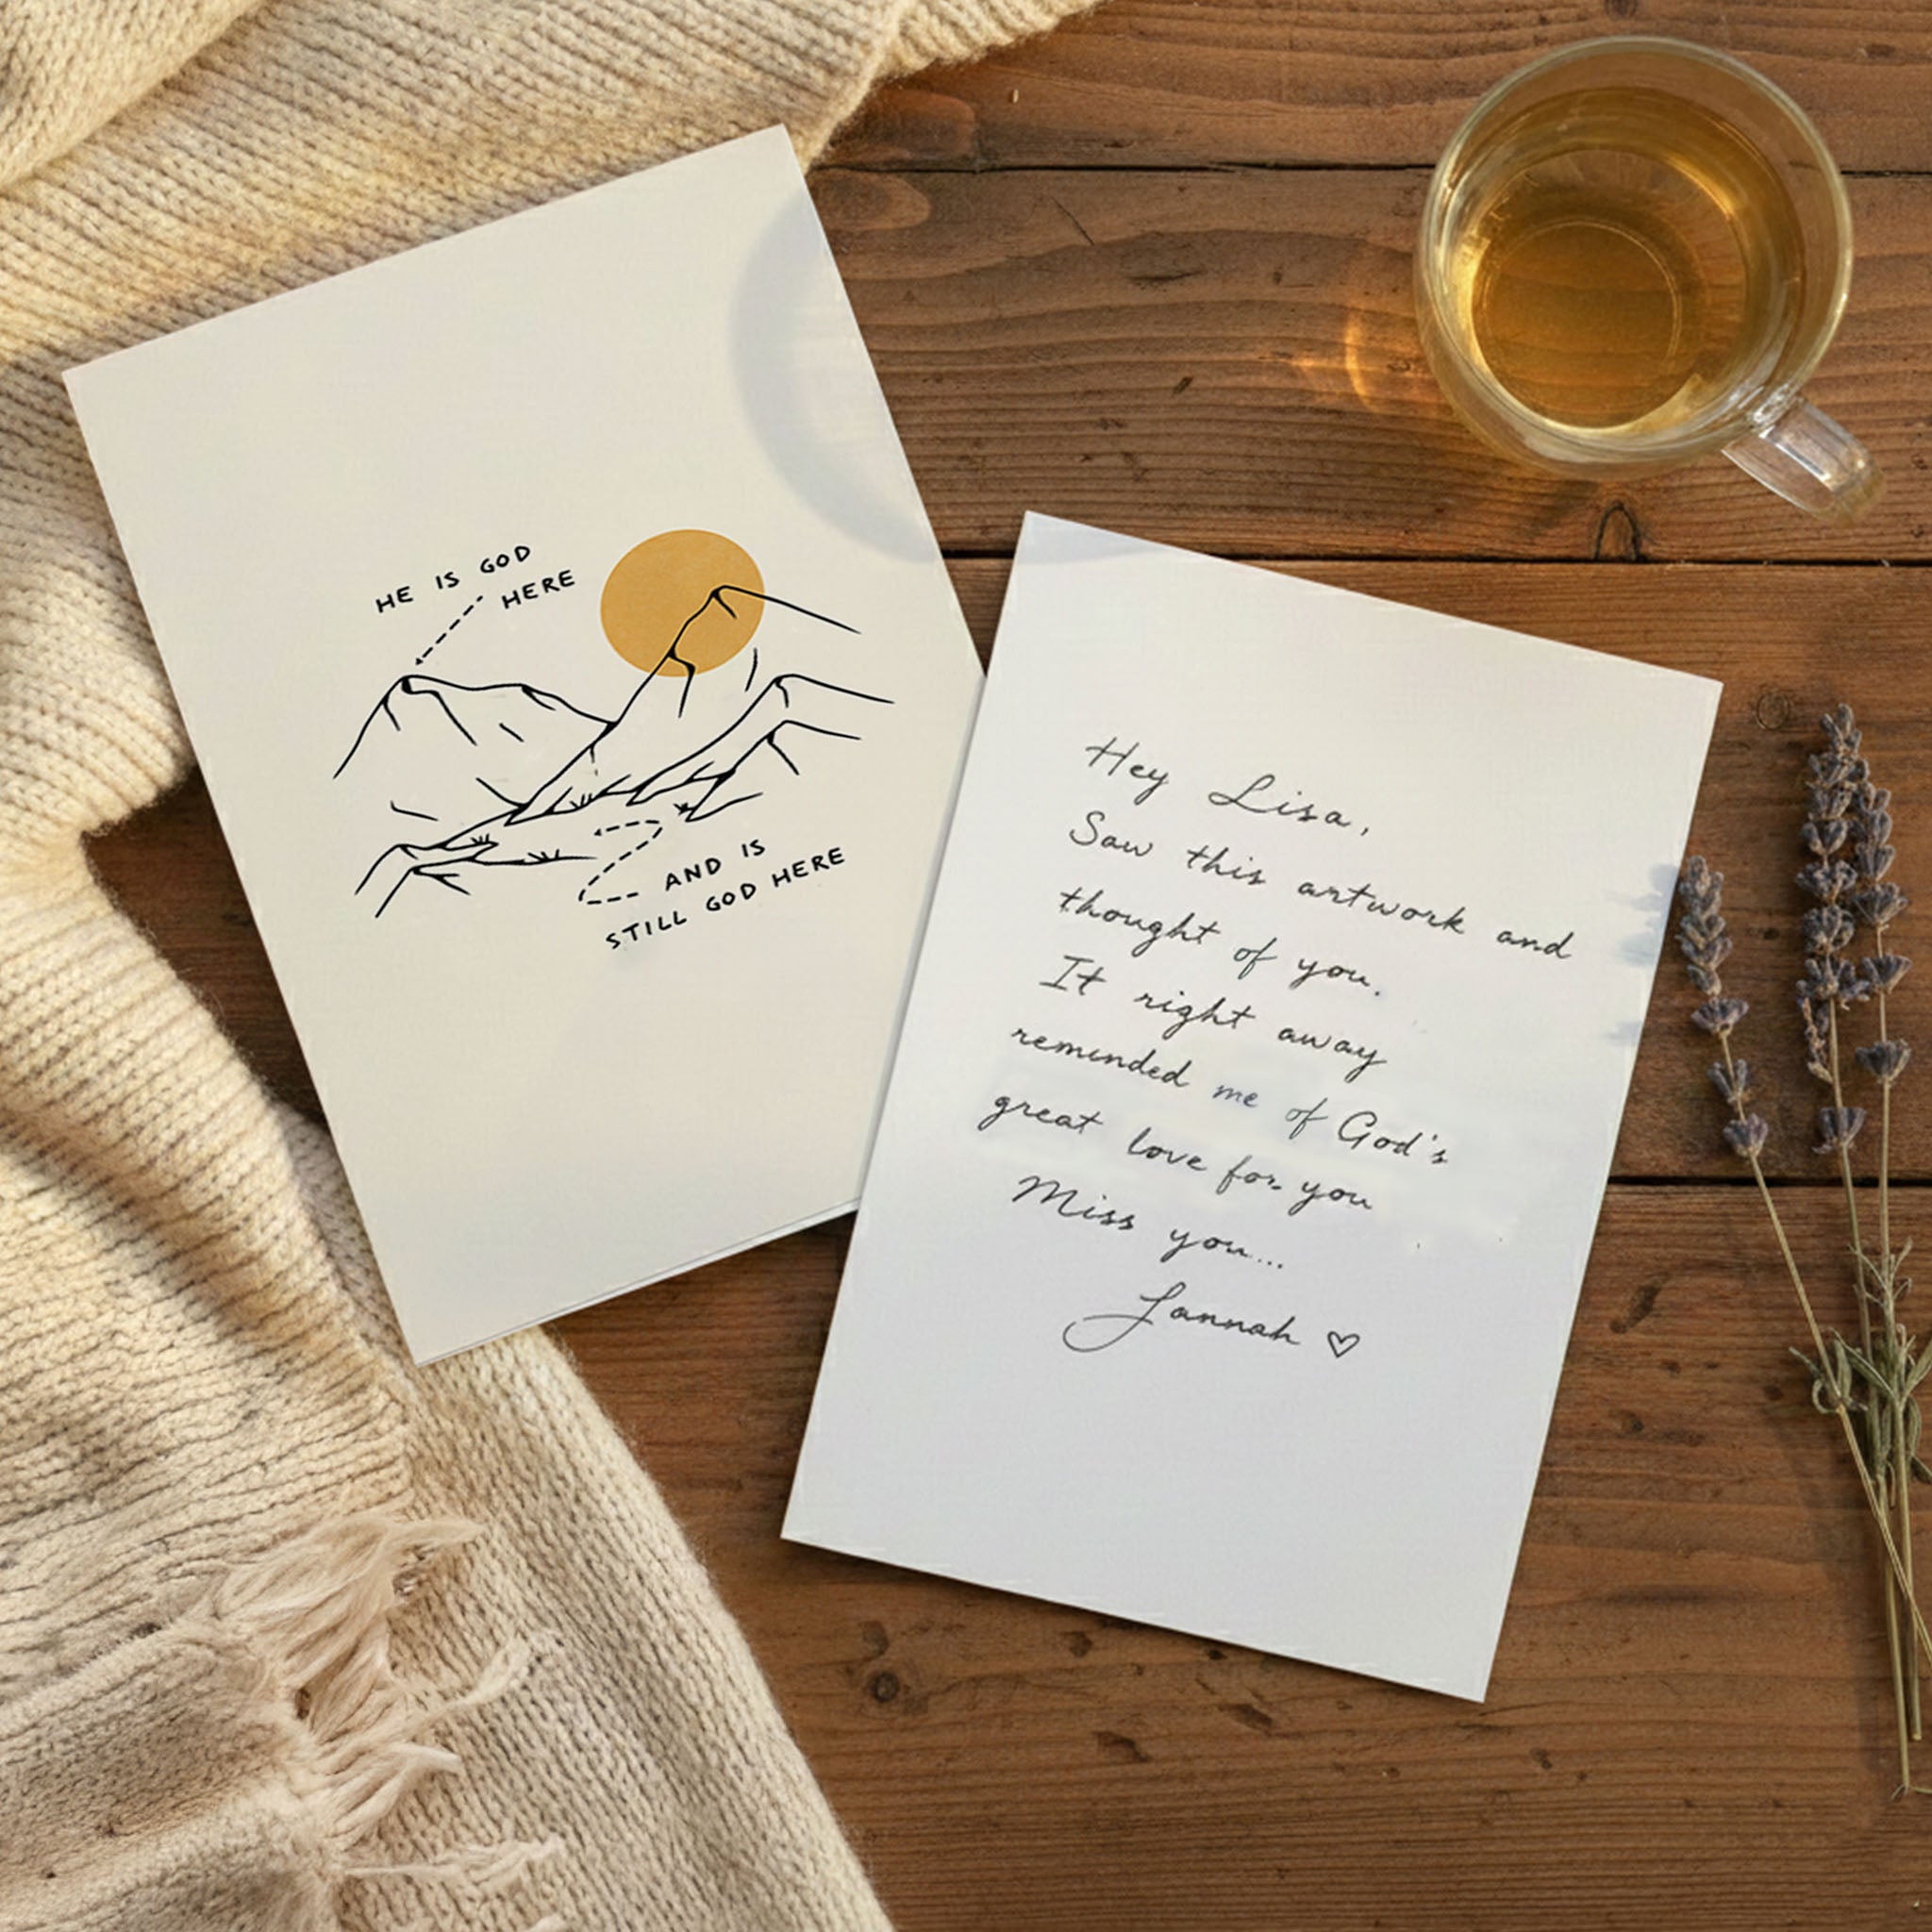 HE IS GOD
HERE
AND IS
STILL GOD HERE
Hey Lisa,
Saw this artwork and
thought of you.
It right away
reminded me of God's
great love for you
Miss you...
Jannah ♡